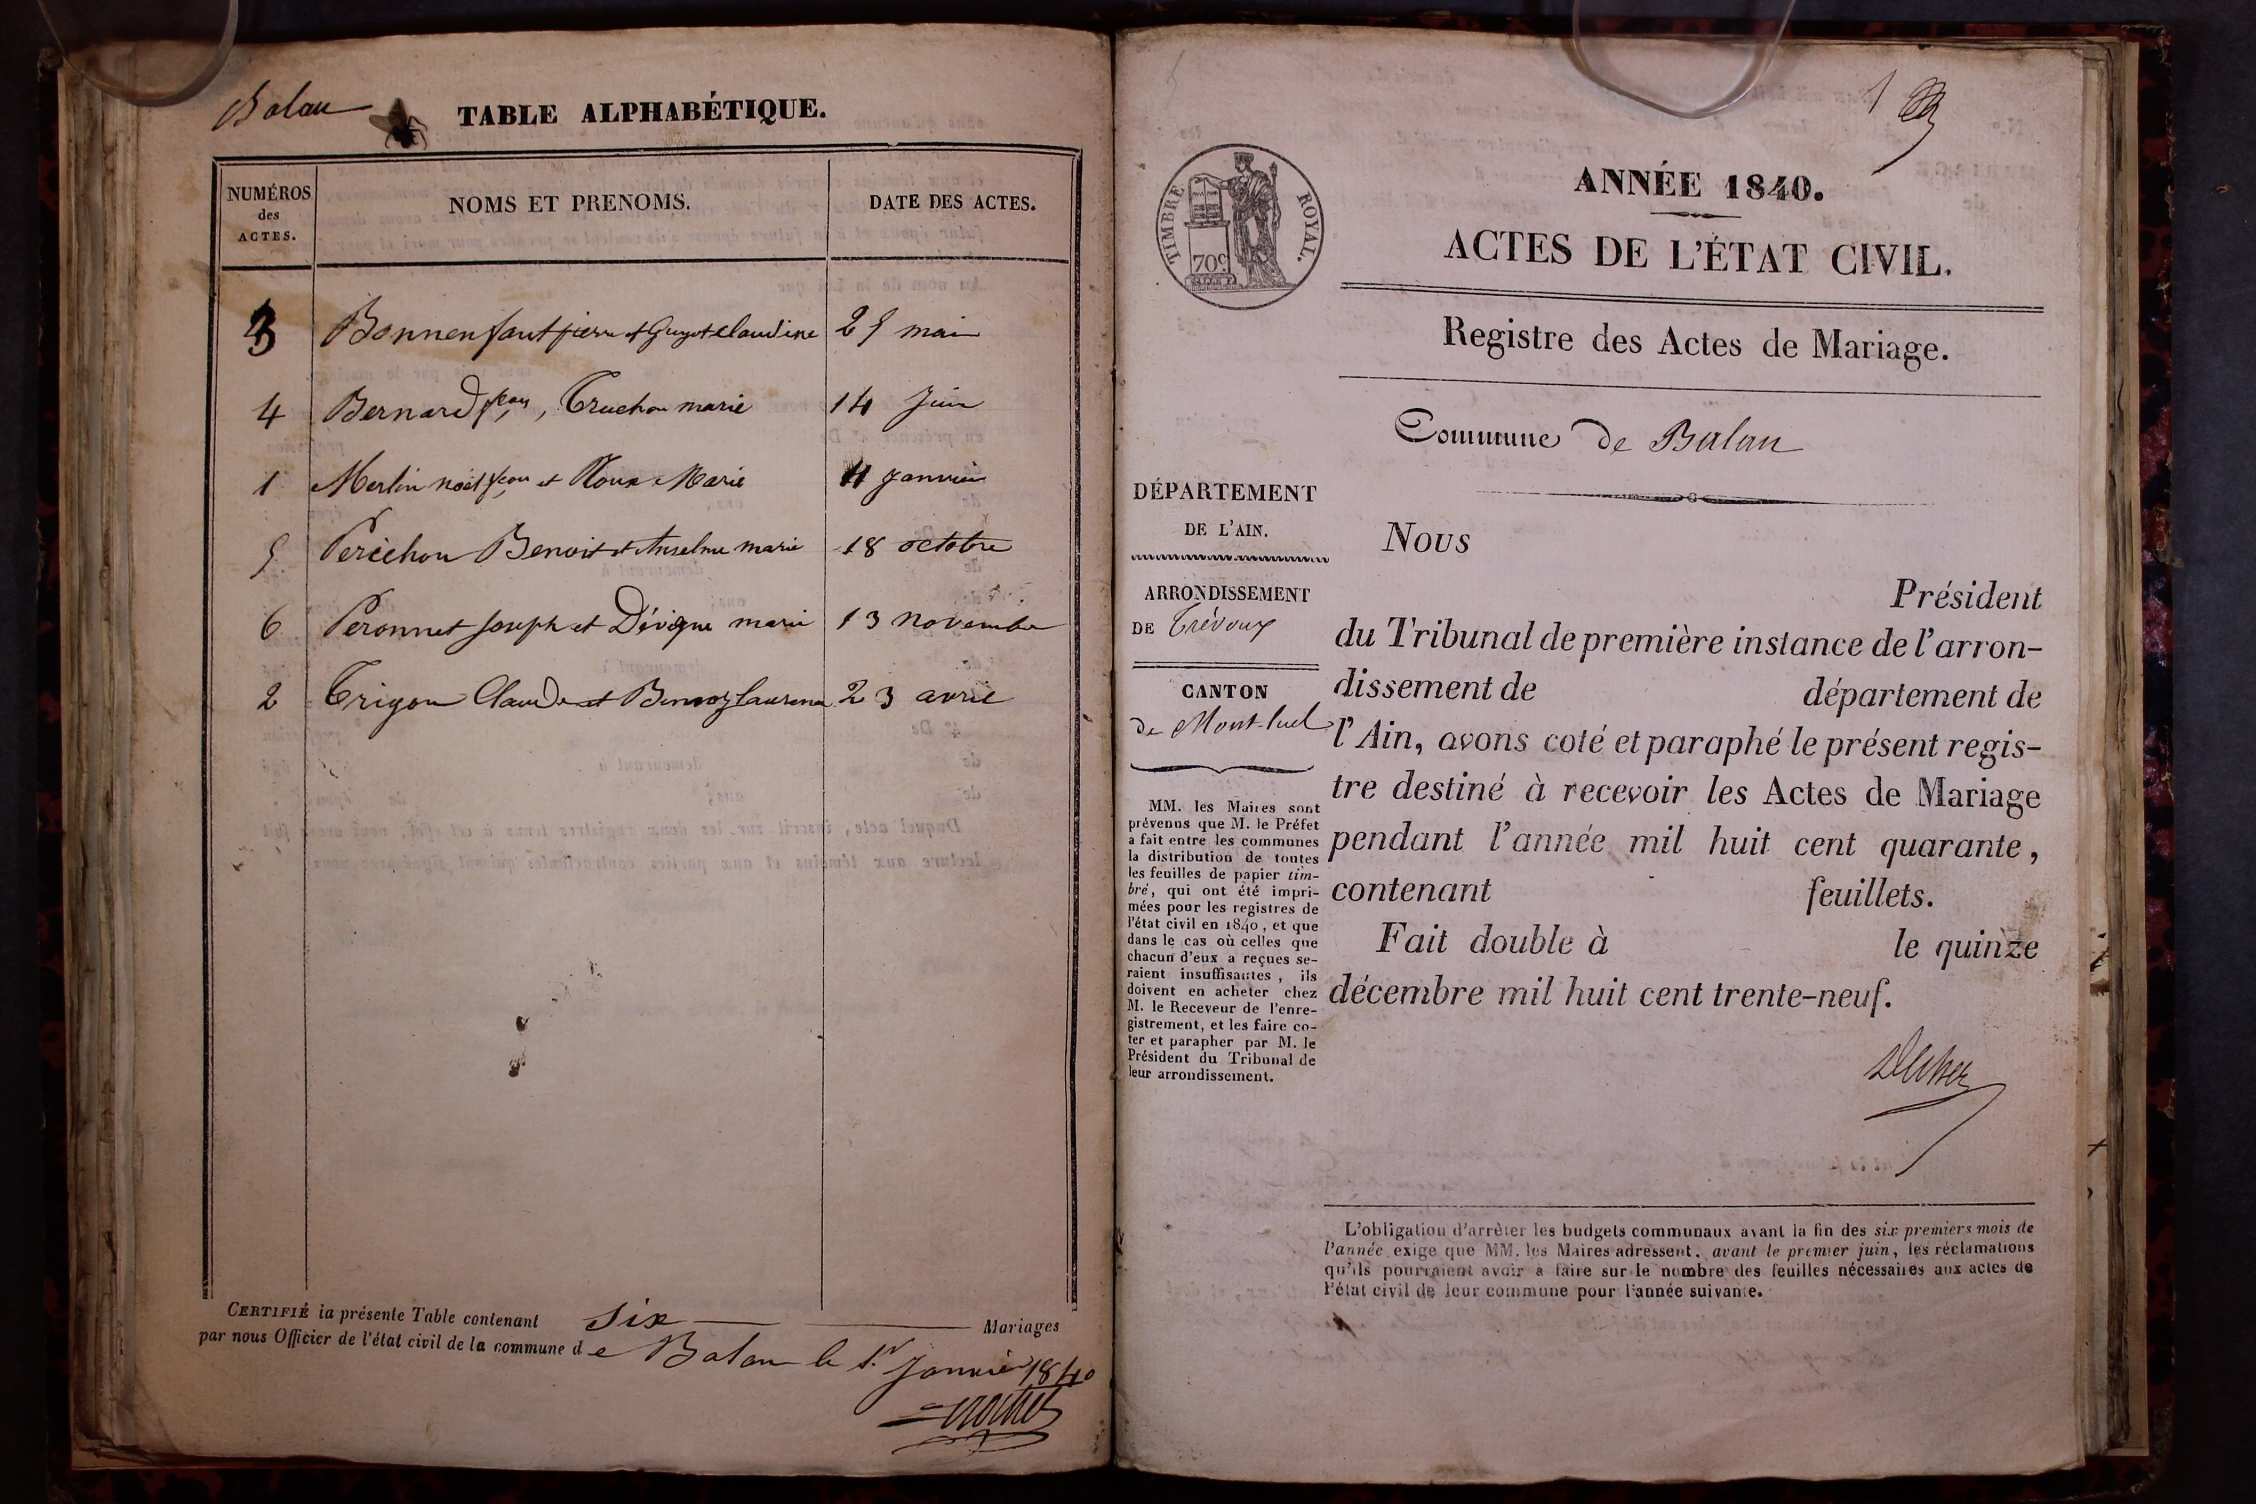 Balan
TABLE ALPHABÉTIQUE.
NUMÉROS
des
ACTES.
NOMS ET PRENOMS.
DATE DES ACTES.
3 Bonnenfant pierre et Guyot claudine 25 mai
4 Bernard jean, Truchon marie 14 Juin
1 Merlin noël jean et Roux Marie 11 Janvier
5 Peréchon Benoit et Anselme marie 18 octobre
6 Peronnet Joseph et Dévigne marie 13 novembre
2 Trigon Claude et 23 avril
CERTIFIÉ la présente Table contenant six Mariages
par nous Officier de l'état civil de la commune de Balan le 1.r Janvier 1840
1
TIMBRE ROYAL.
70c
ANNÉE 1840.
ACTES DE L'ÉTAT CIVIL.
Registre des Actes de Mariage.
Commune de Balan
DÉPARTEMENT
DE L'AIN.
ARRONDISSEMENT
DE Trévoux
CANTON
de Mont-luel
MM. les Maires sont
prévenus que M. le Préfet
a fait entre les communes
la distribution de toutes
les feuilles de papier tim-
bré, qui ont été impri-
mées pour les registres de
l'état civil en 1840, et que
dans le cas où celles que
chacun d'eux a reçues se-
raient insuffisantes, ils
doivent en acheter chez
M. le Receveur de l'enre-
gistrement, et les faire co-
ter et parapher par M. le
Président du Tribunal de
leur arrondissement.
Nous
Président
du Tribunal de première instance de l'arron-
dissement de département de
l'Ain, avons coté et paraphé le présent regis-
tre destiné à recevoir les Actes de Mariage
pendant l'année mil huit cent quarante,
contenant feuillets.
Fait double à le quinze
décembre mil huit cent trente-neuf.
L'obligation d'arrêter les budgets communaux avant la fin des six premiers mois de
l'année exige que MM. les Maires adressent, avant le premier juin, les réclamations
qu'ils pourraient avoir à faire sur le nombre des feuilles nécessaires aux actes de
l'état civil de leur commune pour l'année suivante.